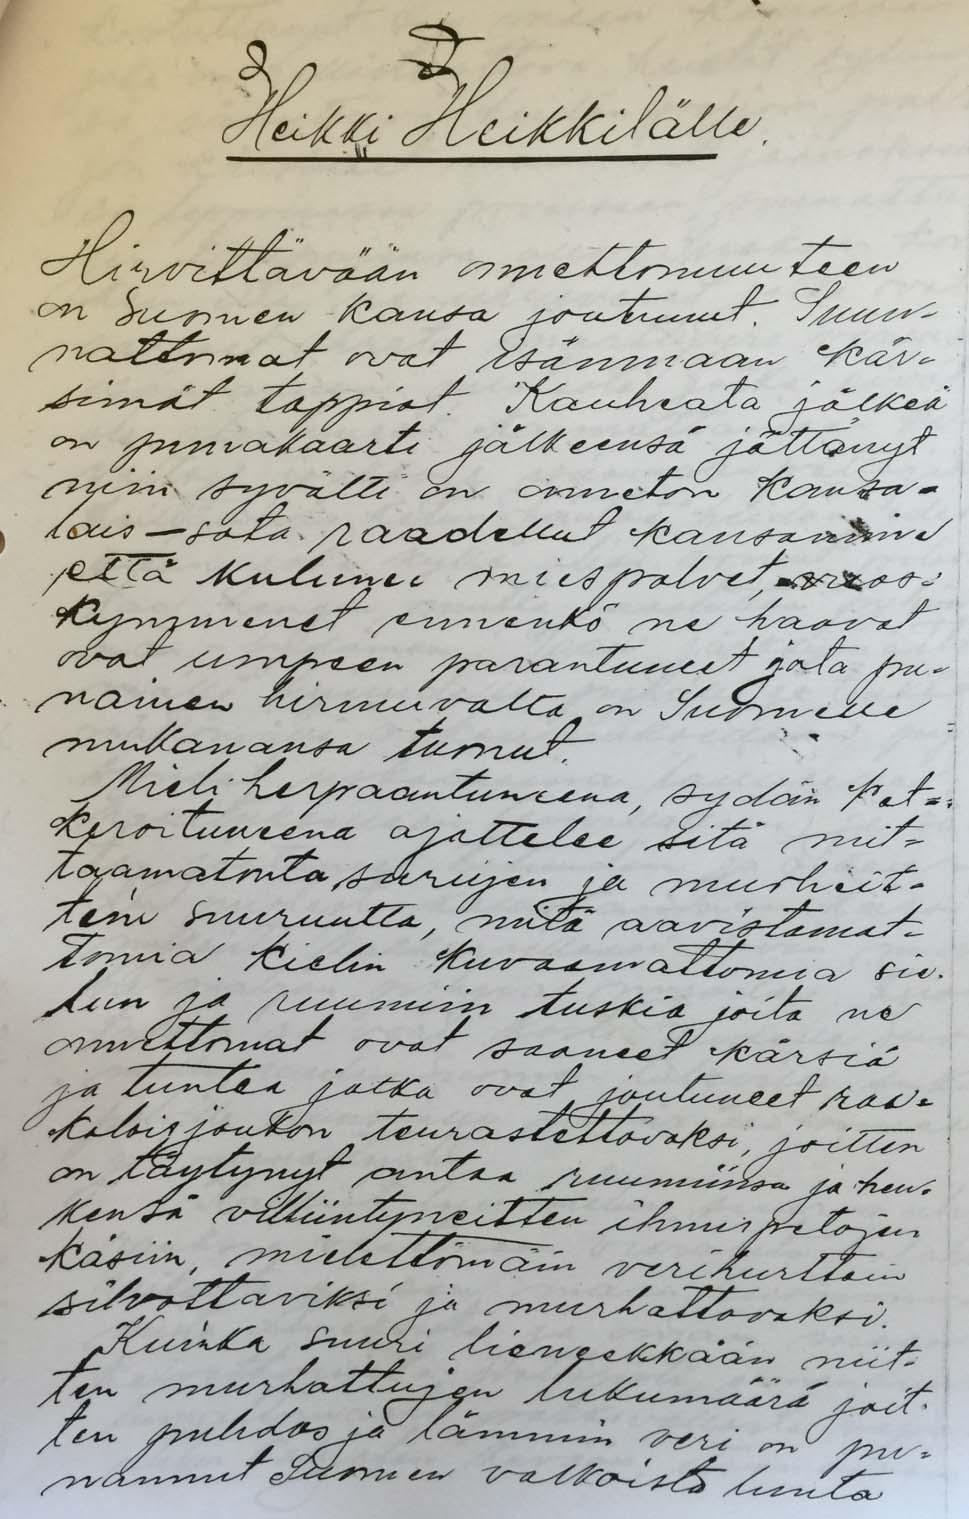 Heikki Heikkilälle.
Hirvittävään onnettomuuteen
on Suomen kansa joutunut. Suun-
nattomat ovat isänmaan kär-
simät tappiot. Kauheata jälkeä
on punakaarti jälkeensä jättänyt
niin syvälti on onneton kansa-
lais-sota raadellut kansamme
että kulunee miespolvet, vuos-
kymmenet ennenkö ne haavat
ovat umpeen parantuneet jota pu-
nainen hirmuvalta on Suomelle
mukanansa tuonut.
Mieli herpaantuneena, sydän kat-
keroituneena ajattelee sitä mit-
taamatonta surujen ja murheit-
tein suuruutta, mitä aavistamat-
tomia kielin kuvaamattomia sie-
lun ja ruumiin tuskia joita ne
onnettomat ovat saaneet kärsiä
ja tuntea jotka ovat joutuneet raa-
kalaisjoukon teurastettavaksi, joitten
on täytynyt antaa ruumiinsa ja hen-
kensä villiintyneitten ihmispetojen
käsiin, mielettömäin verihurttain
silvottaviksi ja murhattavaksi.
Kuinka suuri lieneekkään niit-
ten murhattujen lukumäärä joit-
ten puhdas ja lämmin veri on pu-
nannut Suomen valkoista lunta